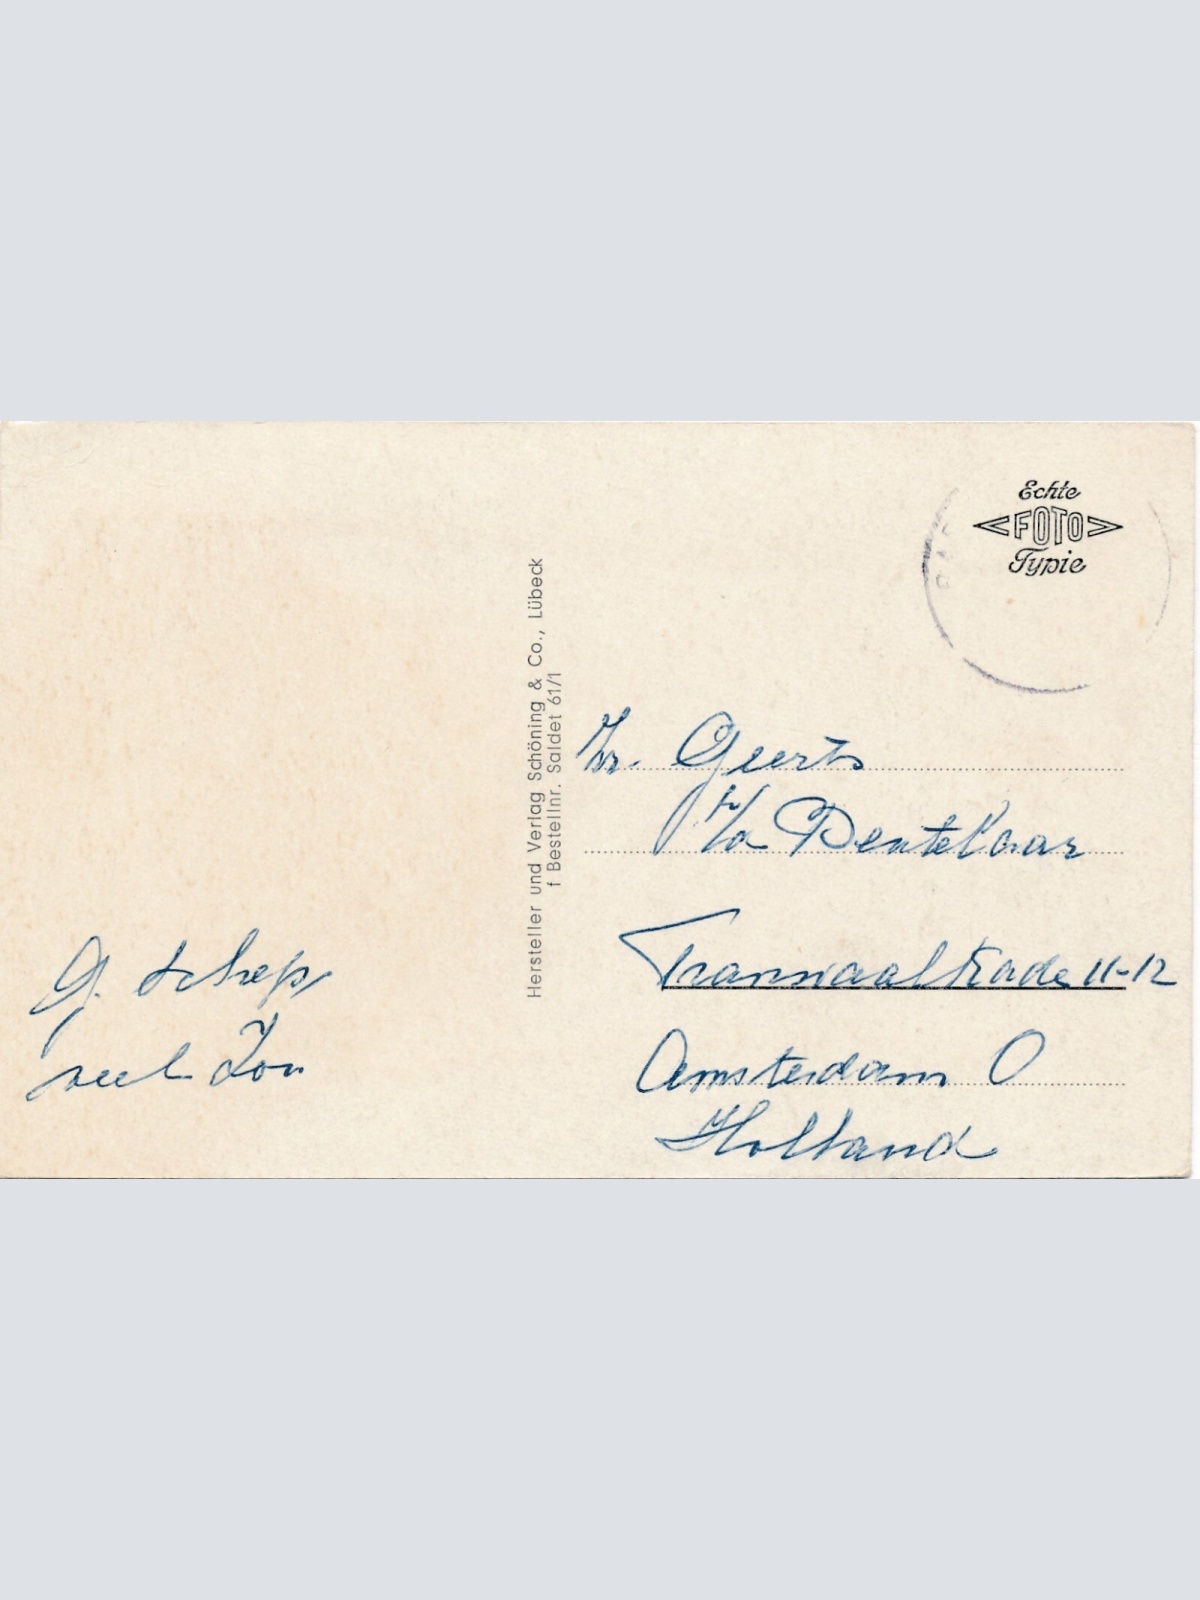 Echte
FOTO
Typie
Hersteller und Verlag Schöning & Co., Lübeck
f Bestellnr. Saldet 61/1
Geerts
p/a Dentelaar
Transvaalkade 11-12
Amsterdam O
Holland
G. Scheps
veel Zon